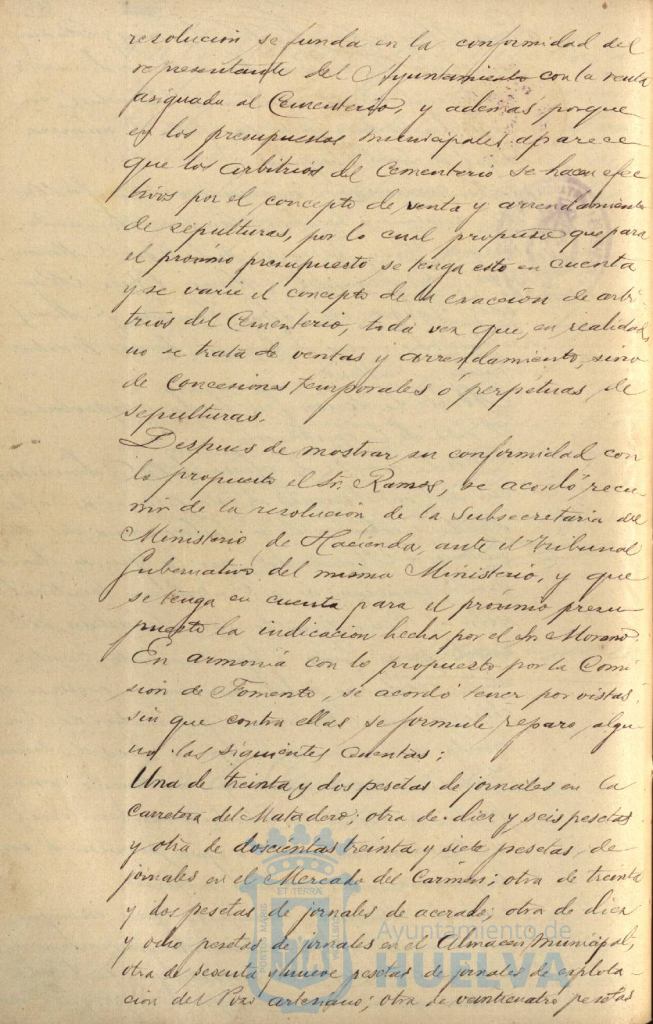 resolucion se funda en la conformidad del
representante del Ayuntamiento con la venta
asignada al Cementerio, y además porque
en los presupuestos municipales aparece
que los arbitrios del Cementerio se hacen efec
tivos por el concepto de venta y arrendamiento
de sepulturas, por lo cual propuso que para
el próximo presupuesto se tenga esto en cuenta
y se varie el concepto de la exacción de arbi-
trios del Cementerio, toda vez que, en realidad,
no se trata de ventas y arrendamiento, sino
de concesiones temporales ó perpetuas de
sepulturas.
Despues de mostrar su conformidad con
lo propuesto el Sr. Ramos, se acordó recu-
rrir de la resolución de la Subsecretaria del
Ministerio de Hacienda, ante el Tribunal
Gubernativo del mismo Ministerio, y que
se tenga en cuenta para el próximo presu
puesto la indicacion hecha por el Sr. Moreno.
En armonía con lo propuesto por la Comi
sion de Fomento, se acordó tener por vistas,
sin que contra ellas se formule reparo algu
no las siguientes cuentas:
Una de treinta y dos pesetas de jornales en la
Carretera del Matadero; otra de diez y seis pesetas
y otra de doscientas treinta y siete pesetas, de
jornales en el Mercado del Carmen; otra de treinta
y dos pesetas de jornales de acerado; otra de diez
y ocho pesetas de jornales en el Almacen Municipal,
otra de sesenta y nueve pesetas de jornales de explota-
cion del Pozo artesiano; otra de veinticuatro pesetas
Ayuntamiento de
HUELVA